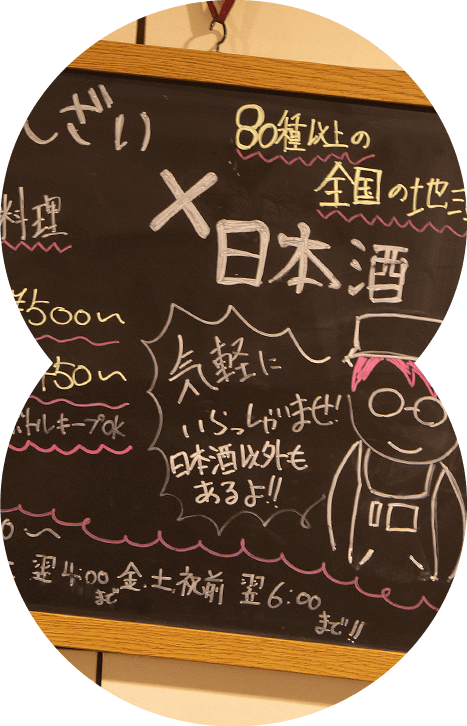 しざい
80種以上の
全国の地
料理
×
日本酒
¥500〜
気軽に
いらっしゃいませ!
150〜
日本酒以外も
ボトルキープOK
あるよ!!
0〜
翌4:00まで 金.土.祝前 翌6:00まで!!